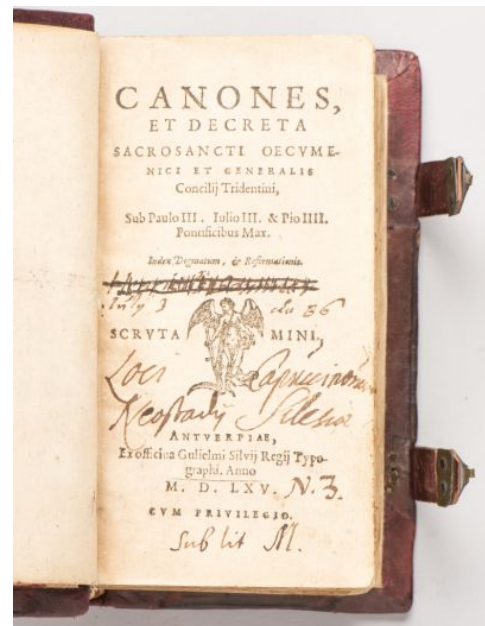 CANONES,
ET DECRETA
SACROSANCTI OECVME-
NICI ET GENERALIS
Concilij Tridentini,
Sub Paulo III. Iulio III. & Pio IIII.
Pontificibus Max.
Index Dogmatum, & Reformationis.
SCRVTA MINI,
Loci Capucinorum
Neostadij Silesiae
ANTVERPIAE,
Ex officina Gulielmi Silvij Regij Typo-
graphi. Anno
M. D. LXV. N. 3.
CVM PRIVILEGIO.
Sub lit M.